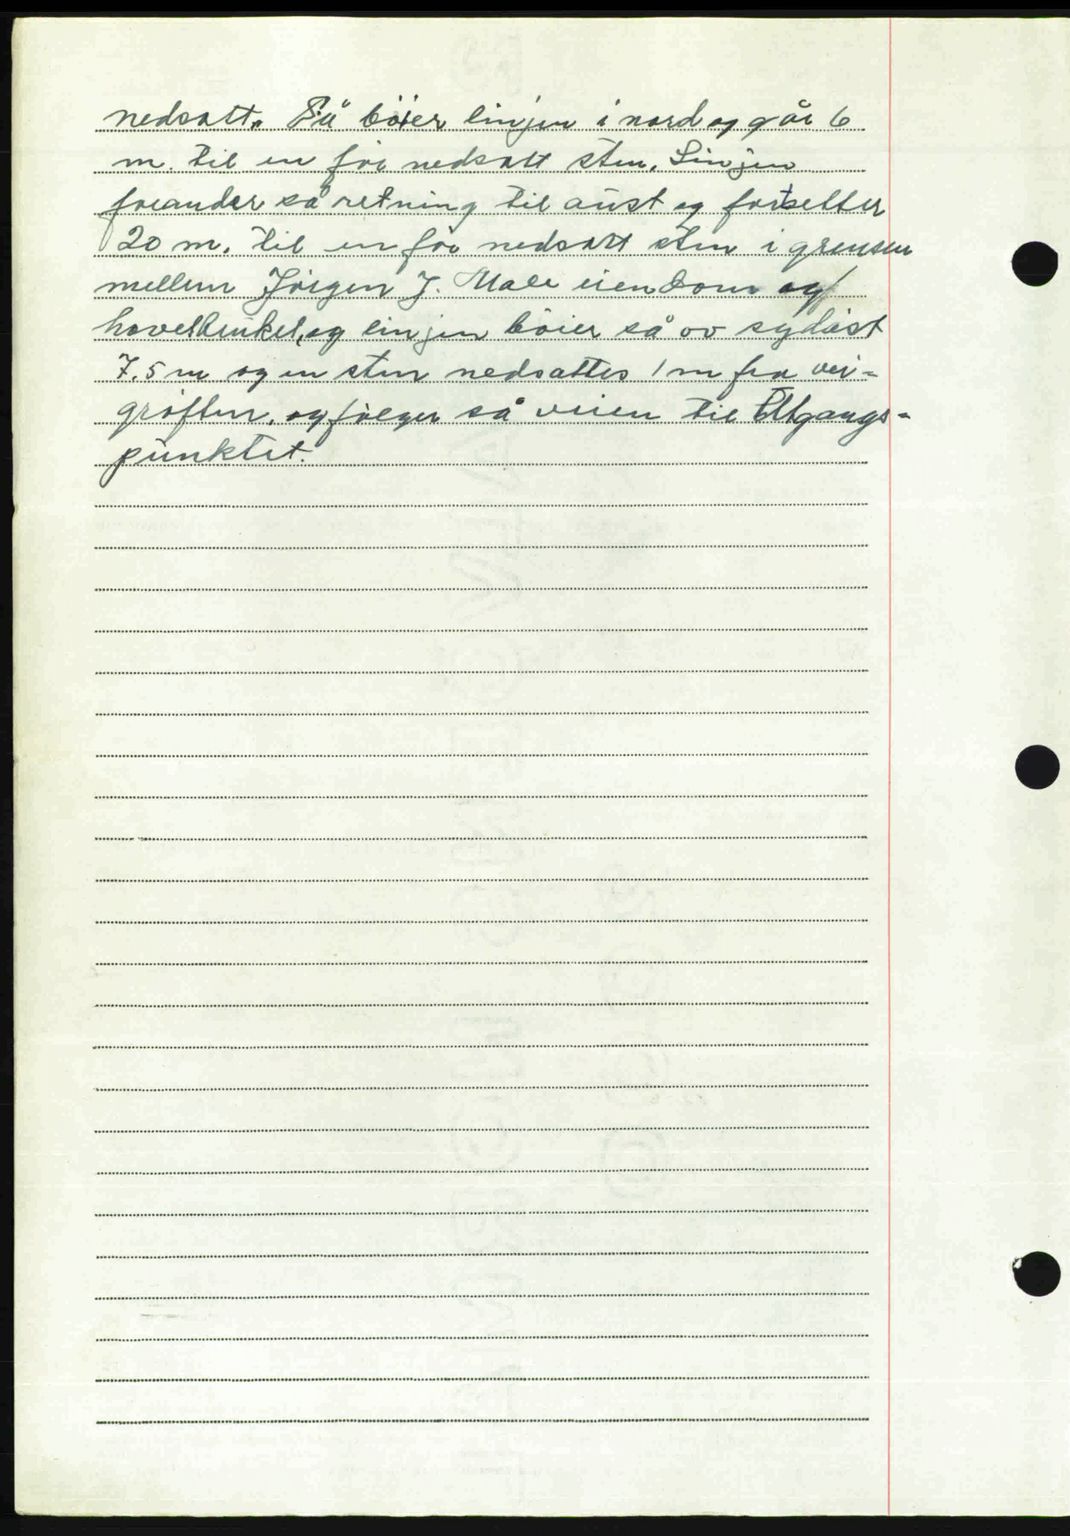 nedsatt. Så böier linjen i nord og går 6
m. til en för nedsatt sten. Linjen
forander så retning til aust og fortsetter
20 m. til en för nedsatt sten i grensen
mellem Jörgen J. Male eiendom og
hovelbruket, og linjen böier så ov sydöst
7.5 m og en sten nedsattes 1 m fra vei-
gröften. og fölger så veien til Utgangs-
punktet.